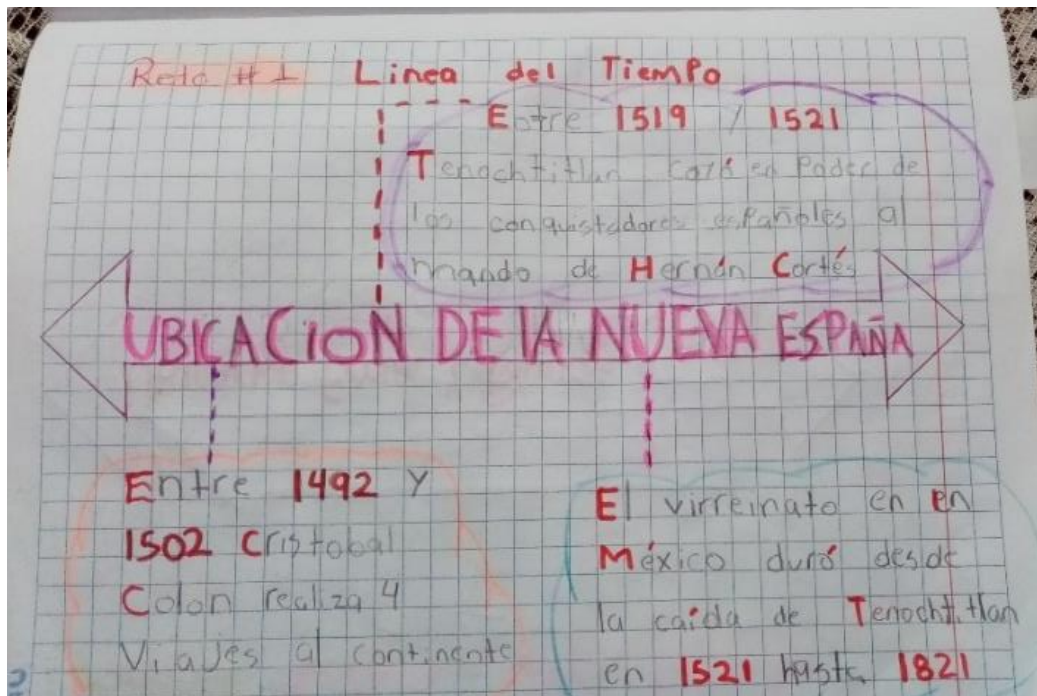 Reto #1 Linea del Tiempo
Entre 1519 / 1521
Tenochtitlan cayó en Poder de
los conquistadores españoles al
mando de Hernán Cortés
UBICACION DE LA NUEVA ESPAÑA
Entre 1492 Y
1502 Cristobal
Colon realiza 4
Viajes al continente
El virreinato en en
México duró desde
la caída de Tenochtitlan
en 1521 hasta 1821
2